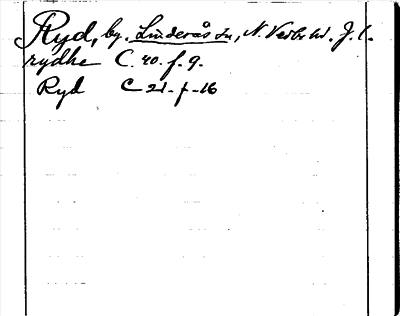 Ryd, by. Linderås sn, N. Vedbo hd. J. l.
rydhe C. 20. f. 9.
Ryd C 21. f. 16